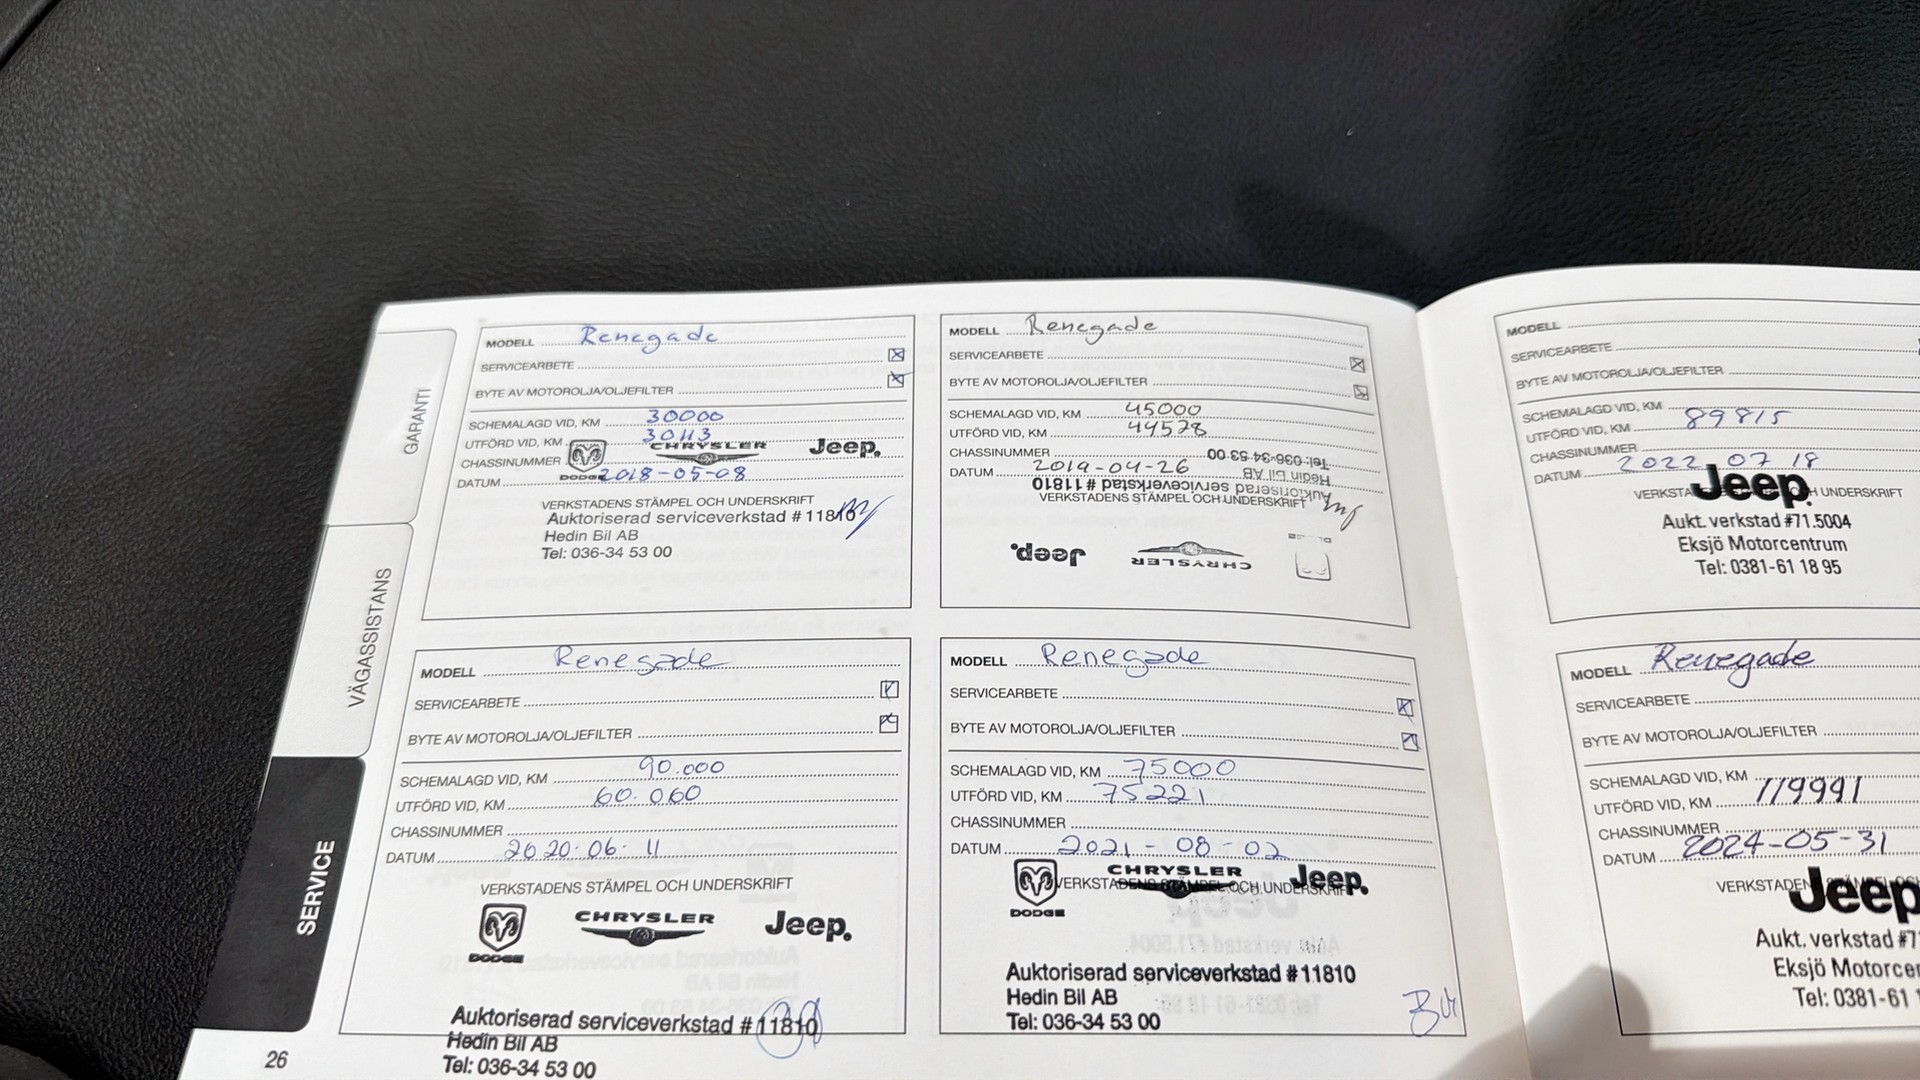 GARANTI
VÄGASSISTANS
SERVICE
MODELL Renegade
SERVICEARBETE
BYTE AV MOTOROLJA/OLJEFILTER
SCHEMALAGD VID, KM 30000
UTFÖRD VID, KM 30113
CHASSINUMMER
DATUM 2018-05-08
DODGE CHRYSLER Jeep.
VERKSTADENS STÄMPEL OCH UNDERSKRIFT
Auktoriserad serviceverkstad #11810
Hedin Bil AB
Tel: 036-34 53 00
MODELL Renegade
SERVICEARBETE
BYTE AV MOTOROLJA/OLJEFILTER
SCHEMALAGD VID, KM 45000
UTFÖRD VID, KM 44578
CHASSINUMMER
DATUM 2019-04-26
VERKSTADENS STÄMPEL OCH UNDERSKRIFT
Tel: 036-34 53 00
Hedin Bil AB
Auktoriserad serviceverkstad #11810
Jeep. CHRYSLER
MODELL Renegade
SERVICEARBETE
BYTE AV MOTOROLJA/OLJEFILTER
SCHEMALAGD VID, KM 90.000
UTFÖRD VID, KM 60.060
CHASSINUMMER
DATUM 2020.06.11
VERKSTADENS STÄMPEL OCH UNDERSKRIFT
DODGE CHRYSLER Jeep.
Auktoriserad serviceverkstad #11810
Hedin Bil AB
Tel: 036-34 53 00
MODELL Renegade
SERVICEARBETE
BYTE AV MOTOROLJA/OLJEFILTER
SCHEMALAGD VID, KM 75000
UTFÖRD VID, KM 75221
CHASSINUMMER
DATUM 2021-08-02
VERKSTADENS STÄMPEL OCH UNDERSKRIFT
DODGE CHRYSLER Jeep.
Auktoriserad serviceverkstad #11810
Hedin Bil AB
Tel: 036-34 53 00
26
MODELL
SERVICEARBETE
BYTE AV MOTOROLJA/OLJEFILTER
SCHEMALAGD VID, KM
UTFÖRD VID, KM 89815
CHASSINUMMER
DATUM 2022 07 18
OCH UNDERSKRIFT
Jeep.
Aukt. verkstad #71.5004
Eksjö Motorcentrum
Tel: 0381-61 18 95
MODELL Renegade
SERVICEARBETE
BYTE AV MOTOROLJA/OLJEFILTER
SCHEMALAGD VID, KM
UTFÖRD VID, KM 119991
CHASSINUMMER
DATUM 2024-05-31
VERKSTADEN
Jeep
Aukt. verkstad #7
Eksjö Motorce
Tel: 0381-61 1